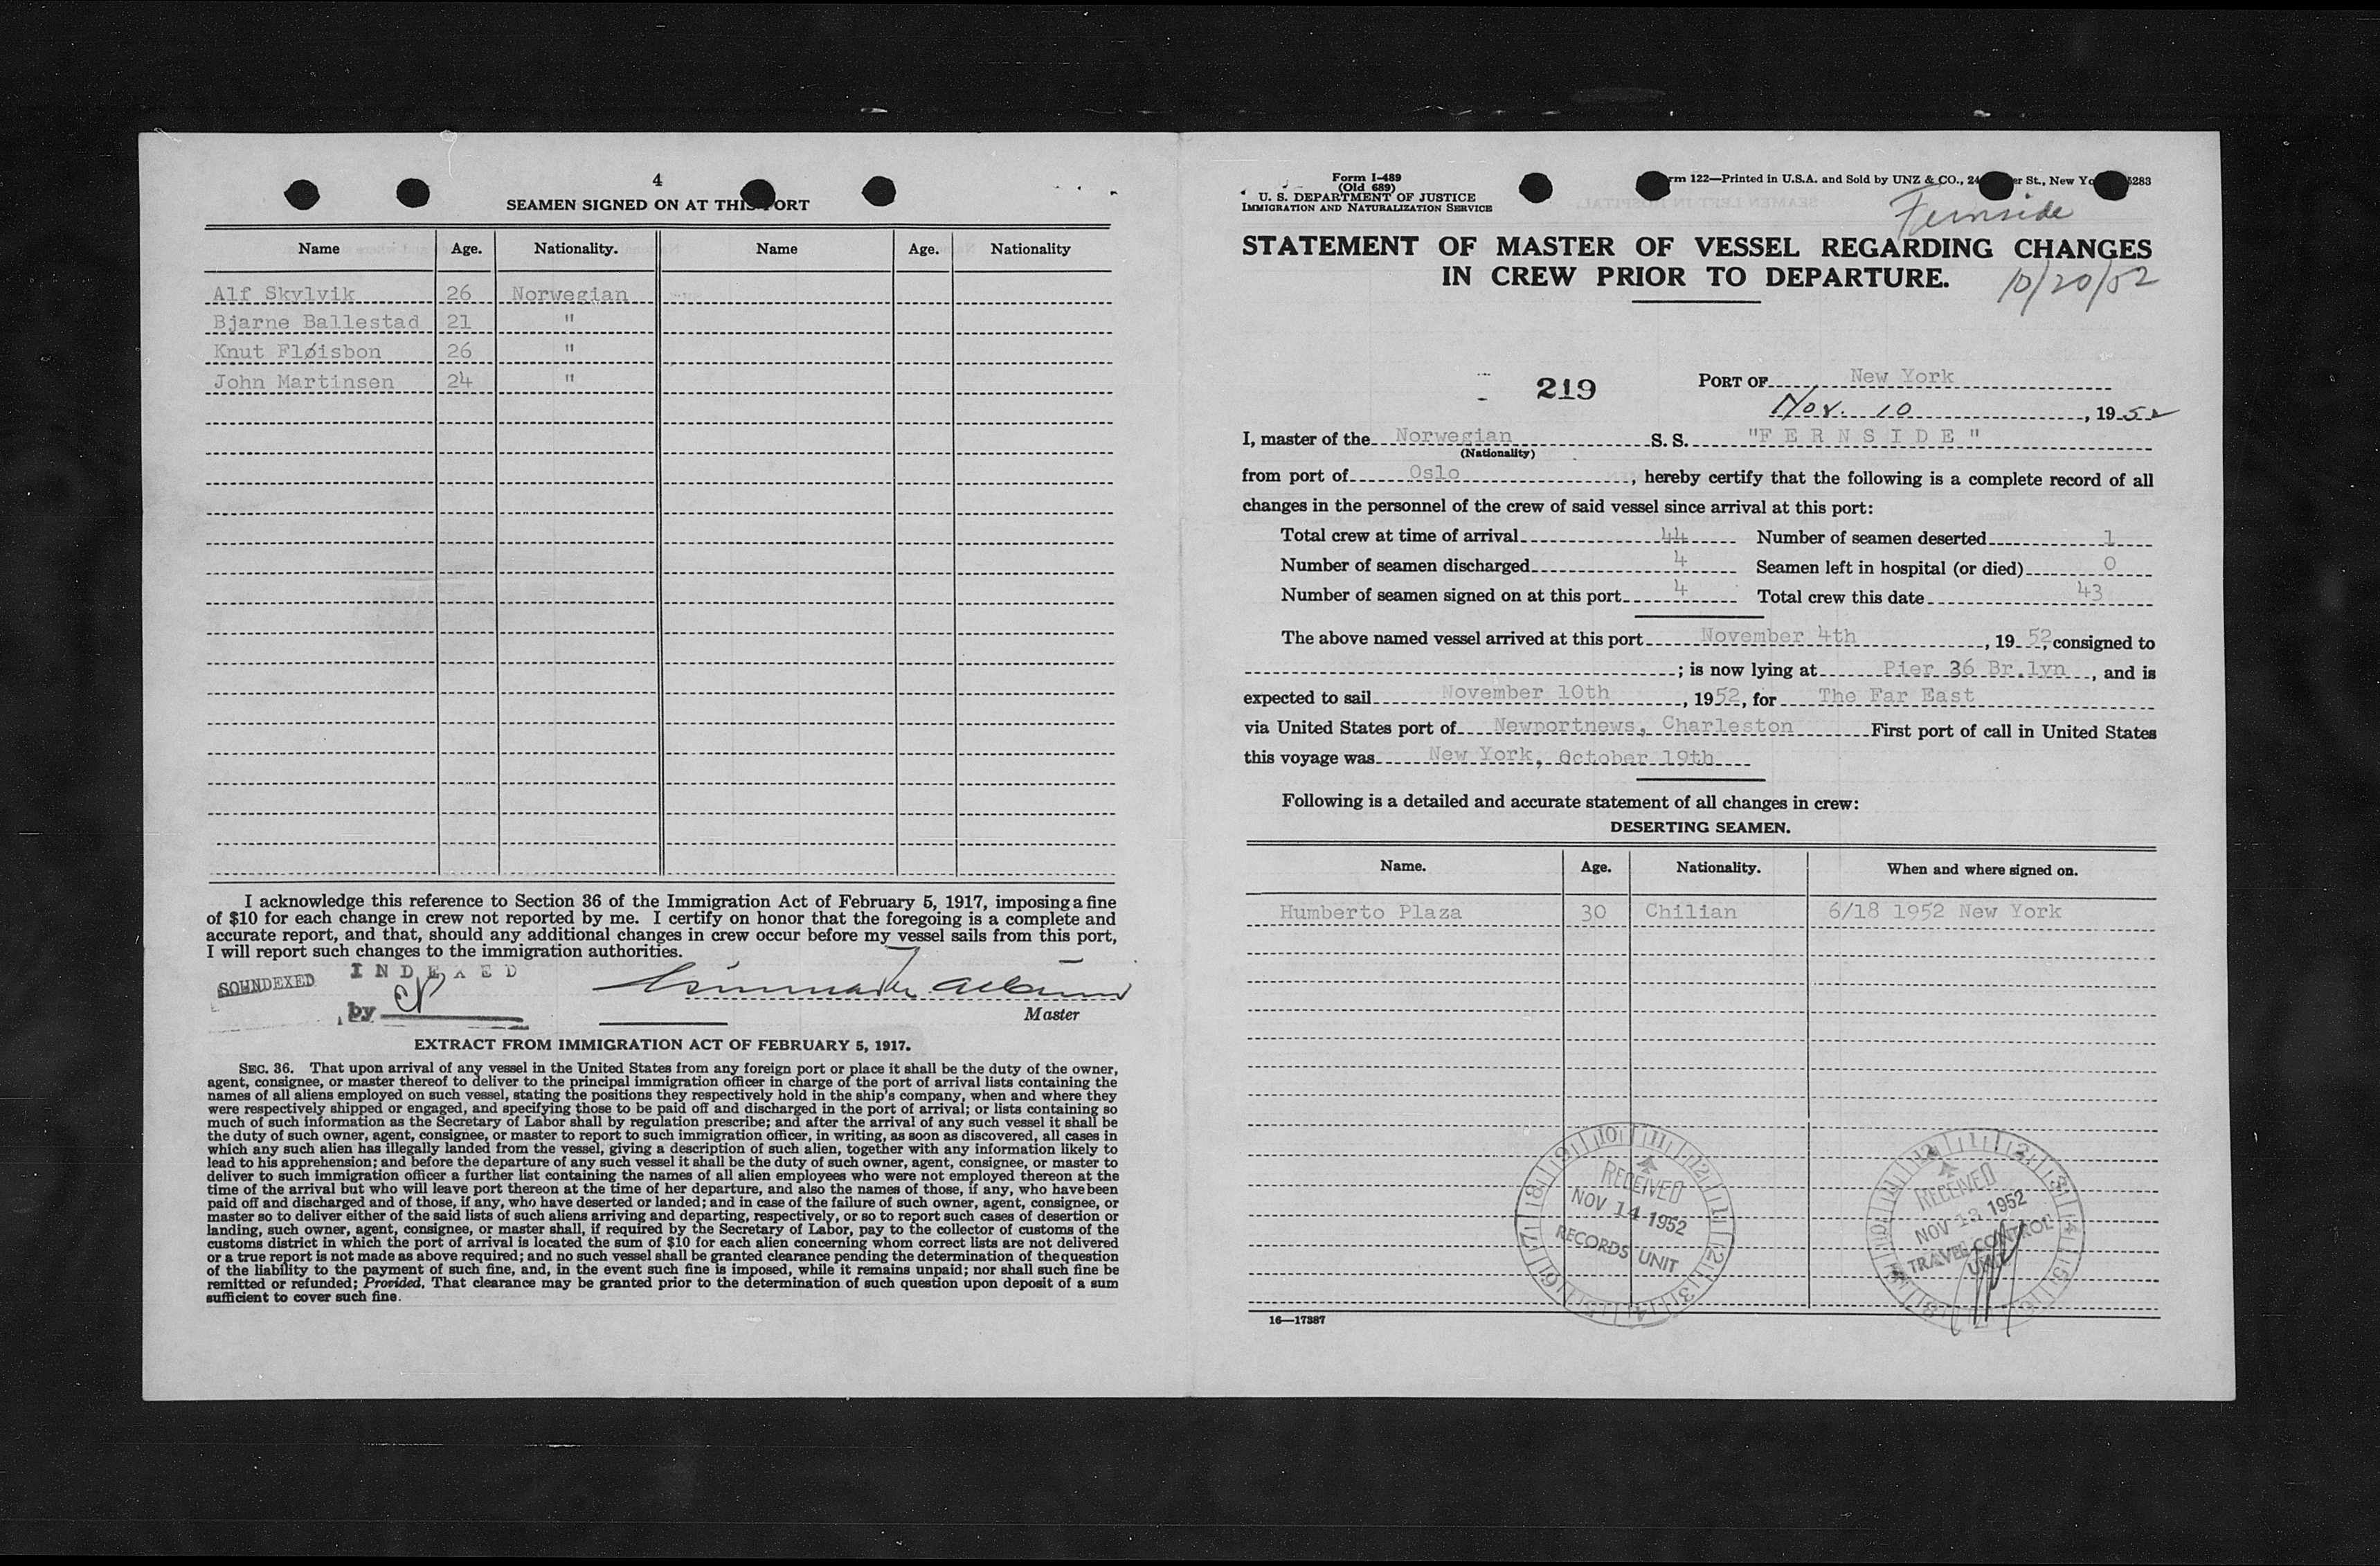 4
SEAMEN SIGNED ON AT THIS PORT
Name Age. Nationality. Name Age. Nationality
Alf Skylvik 26 Norwegian
Bjarne Ballestad 21 "
Knut Fløisbon 26 "
John Martinsen 24 "
I acknowledge this reference to Section 36 of the Immigration Act of February 5, 1917, imposing a fine
of $10 for each change in crew not reported by me. I certify on honor that the foregoing is a complete and
accurate report, and that, should any additional changes in crew occur before my vessel sails from this port,
I will report such changes to the immigration authorities.
SOUNDEXED
INDEXED
by
Master
EXTRACT FROM IMMIGRATION ACT OF FEBRUARY 5, 1917.
SEC. 36. That upon arrival of any vessel in the United States from any foreign port or place it shall be the duty of the owner,
agent, consignee, or master thereof to deliver to the principal immigration officer in charge of the port of arrival lists containing the
names of all aliens employed on such vessel, stating the positions they respectively hold in the ship's company, when and where they
were respectively shipped or engaged, and specifying those to be paid off and discharged in the port of arrival; or lists containing so
much of such information as the Secretary of Labor shall by regulation prescribe; and after the arrival of any such vessel it shall be
the duty of such owner, agent, consignee, or master to report to such immigration officer, in writing, as soon as discovered, all cases in
which any such alien has illegally landed from the vessel, giving a description of such alien, together with any information likely to
lead to his apprehension; and before the departure of any such vessel it shall be the duty of such owner, agent, consignee, or master to
deliver to such immigration officer a further list containing the names of all alien employees who were not employed thereon at the
time of the arrival but who will leave port thereon at the time of her departure, and also the names of those, if any, who have been
paid off and discharged and of those, if any, who have deserted or landed; and in case of the failure of such owner, agent, consignee, or
master so to deliver either of the said lists of such aliens arriving and departing, respectively, or so to report such cases of desertion or
landing, such owner, agent, consignee, or master shall, if required by the Secretary of Labor, pay to the collector of customs of the
customs district in which the port of arrival is located the sum of $10 for each alien concerning whom correct lists are not delivered
or a true report is not made as above required; and no such vessel shall be granted clearance pending the determination of the question
of the liability to the payment of such fine, and, in the event such fine is imposed, while it remains unpaid; nor shall such fine be
remitted or refunded; Provided, That clearance may be granted prior to the determination of such question upon deposit of a sum
sufficient to cover such fine.
Form I-489
(Old 689)
U. S. DEPARTMENT OF JUSTICE
IMMIGRATION AND NATURALIZATION SERVICE
rm 122—Printed in U.S.A. and Sold by UNZ & CO., 24 er St., New Yo 5283
Fernside
STATEMENT OF MASTER OF VESSEL REGARDING CHANGES
IN CREW PRIOR TO DEPARTURE.
10/20/52
219
PORT OF New York
Nov. 10, 1952
I, master of the Norwegian S. S. "FERNSIDE"
(Nationality)
from port of Oslo, hereby certify that the following is a complete record of all
changes in the personnel of the crew of said vessel since arrival at this port:
Total crew at time of arrival 44 Number of seamen deserted 1
Number of seamen discharged 4 Seamen left in hospital (or died) 0
Number of seamen signed on at this port 4 Total crew this date 43
The above named vessel arrived at this port November 4th, 19 52, consigned to
; is now lying at Pier 36 Br.lyn, and is
expected to sail November 10th, 1952, for The Far East
via United States port of Newportnews, Charleston First port of call in United States
this voyage was New York, October 19th
Following is a detailed and accurate statement of all changes in crew:
DESERTING SEAMEN.
Name. Age. Nationality. When and where signed on.
Humberto Plaza 30 Chilian 6/18 1952 New York
RECEIVED
NOV 14 1952
RECORDS UNIT
RECEIVED
NOV 13 1952
TRAVEL CONTROL
UNIT
16—17387